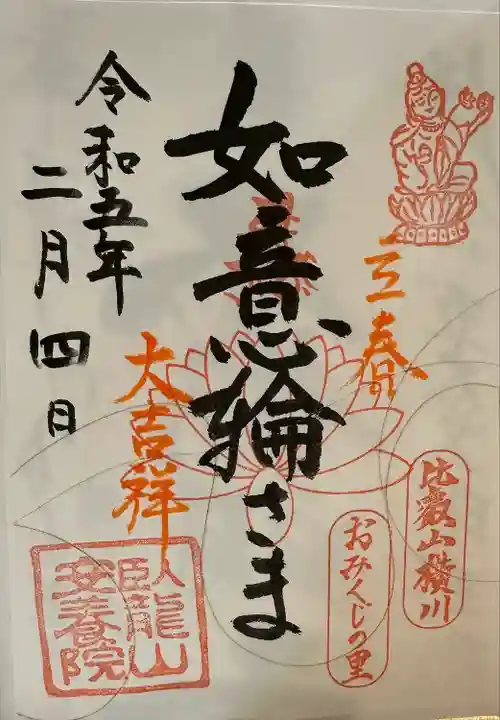 立春
比叡山横川
おみくじの里
如意輪さま
大吉祥
令和五年
二月四日
臥龍山
安養院